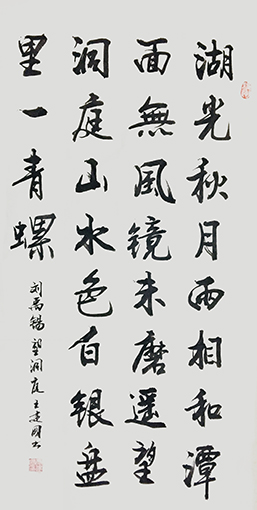 湖光秋月两相和潭
面無風鏡未磨遥望
洞庭山水色白銀盘
里一青螺
刘禹锡望洞庭王